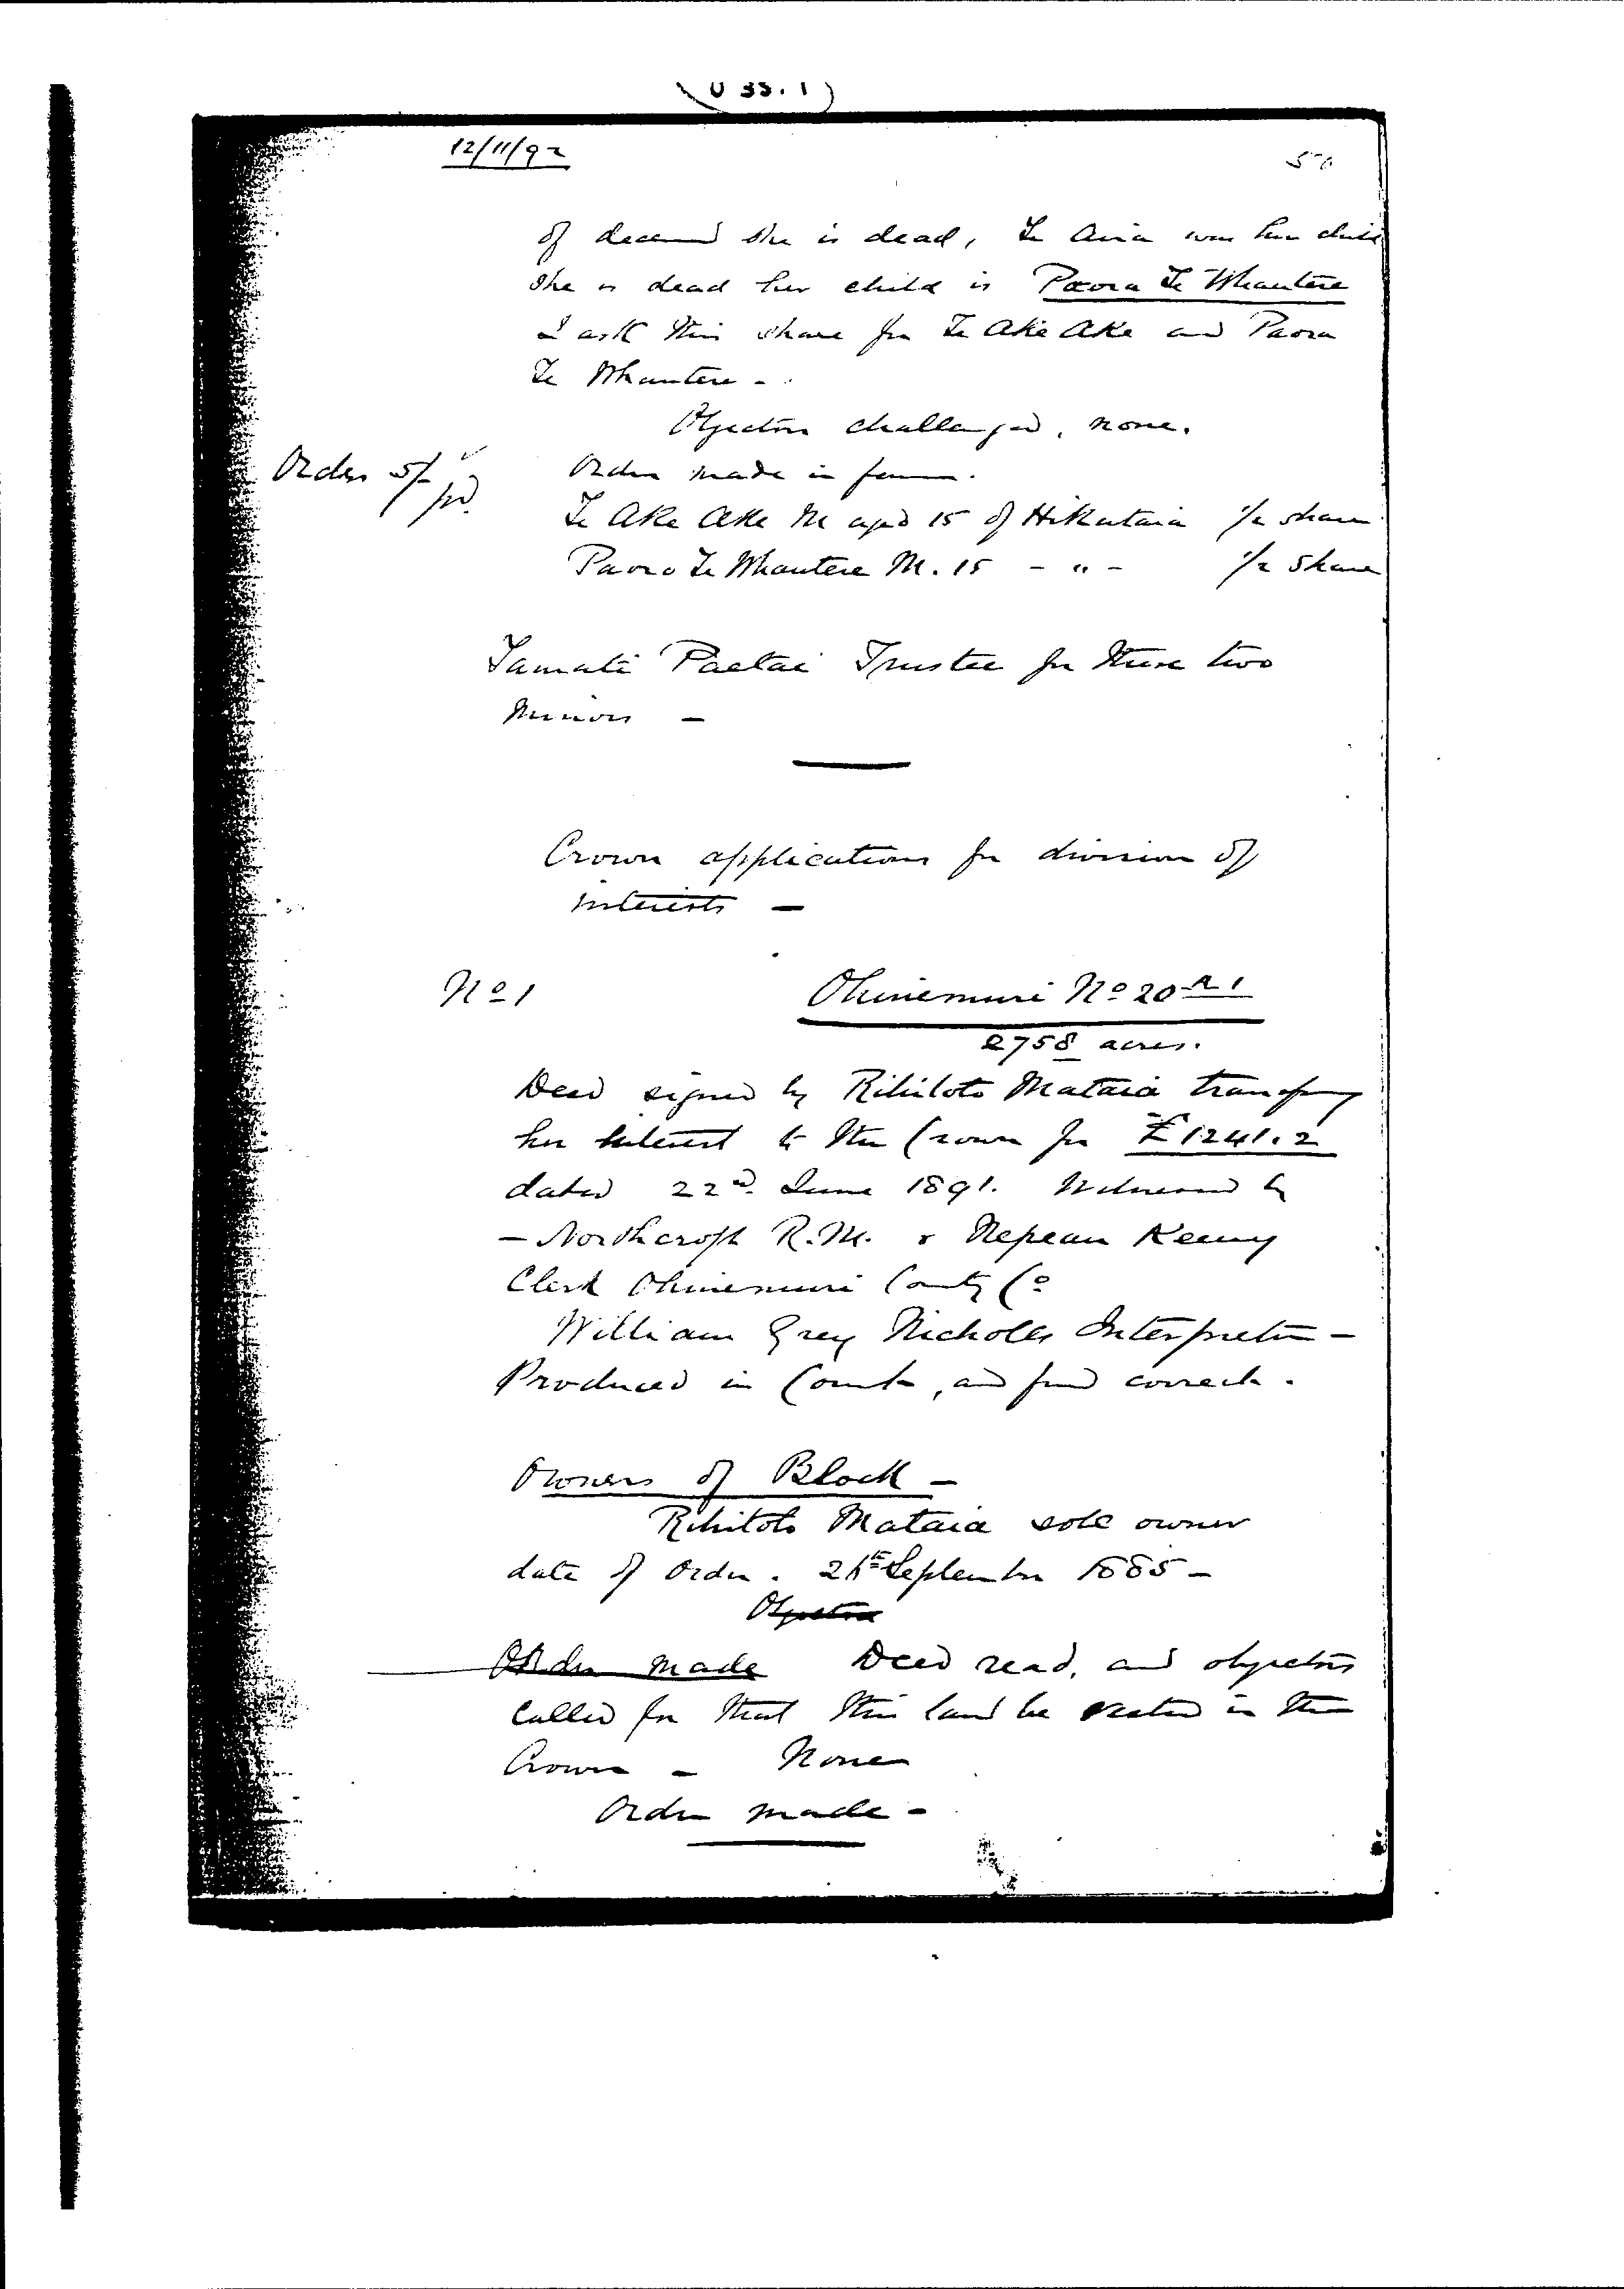 12/11/92
of deceased she is dead, Te Aria was her child
she is dead her child is Paora Te Whautere
I ask this share for Te Ake Ake and Paora
Te Whautere -
Objectors challenged, none.
Order 5/- pd.
Order made in favour.
Te Ake Ake M aged 15 of Hikutaia 1/2 share
Paora Te Whautere M. 15 - " - 1/2 share
Tamati Paetai Trustee for these two
Minors -
Crown applications for division of
interests -
No 1
Ohinemuri No 20 A 1
2758 acres.
Deed signed by Rihitoto Mataia transfg
her interest to the Crown for £1241.2
dated 22nd June 1891. Witnessed by
- Northcroft R.M. & Nepean Kenny
Clerk Ohinemuri County Co
William Grey Nicholls Interpreter -
Produced in Court, and found correct.
Owners of Block -
Rihitoto Mataia sole owner
date of Order. September 1885 -
Objectors
Order made Deed read, and objectors
called for that this land be vested in the
Crown - None
Order made -